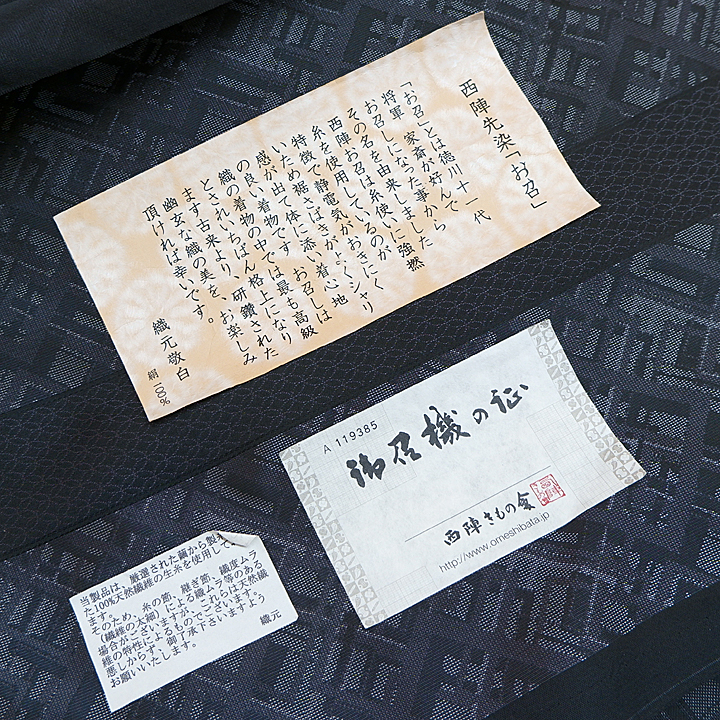 西陣先染「お召」
「お召」とは徳川十一代
将軍 家斎が好んで
お召しになった事から
その名を由来しました
西陣お召は糸使いに強撚
糸を使用しているのが
特徴で静電気がおきにく
いため裾さばきがよくシャリ
感が出て体に添い着心地
の良い着物です お召しは
織の着物の中では最も高級
とされいちばん格上になり
ます古来より、研鑽された
幽玄な織の美を、お楽しみ
頂ければ幸いです。
織元敬白
絹100%
A 119385
御召機の証
西陣きもの會
http://www.omeshibata.jp
当製品は、厳選された繭から製
た100%天然繊維の生糸を使用して
ます。
そのため、糸の節、継ぎ節、繊度ムラ
(繊維の太細)による織ムラ等のある
場合がございますが、これらは天然繊
維の特性によるものでございます。
悪しからず、御了承下さいますよう
お願いいたします。
織元